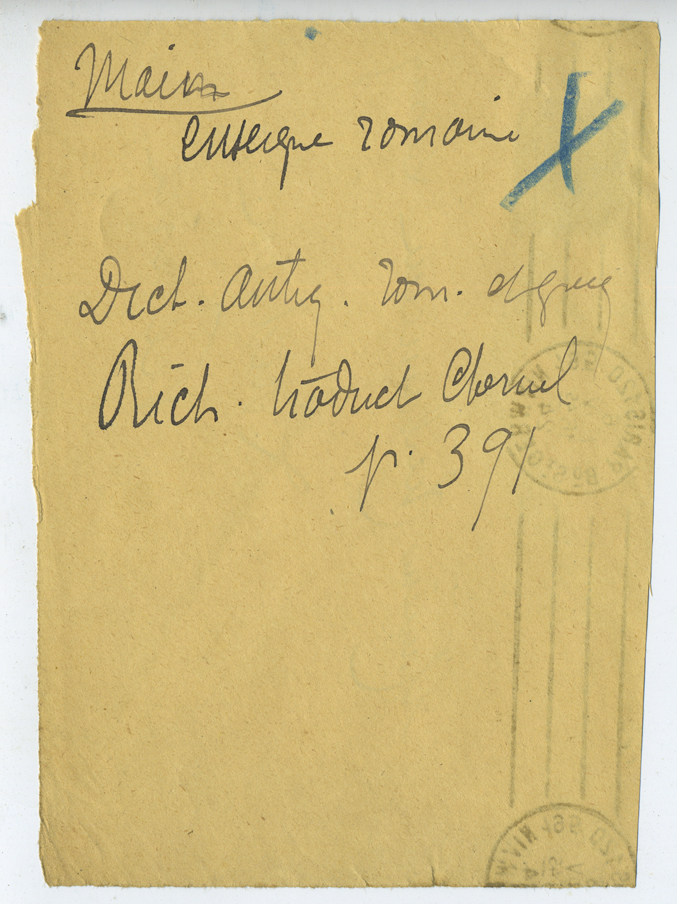 Main
enseigne romaine
Dict. Antiq. rom. et grecq
Rich. traduct Cheruel
p. 391